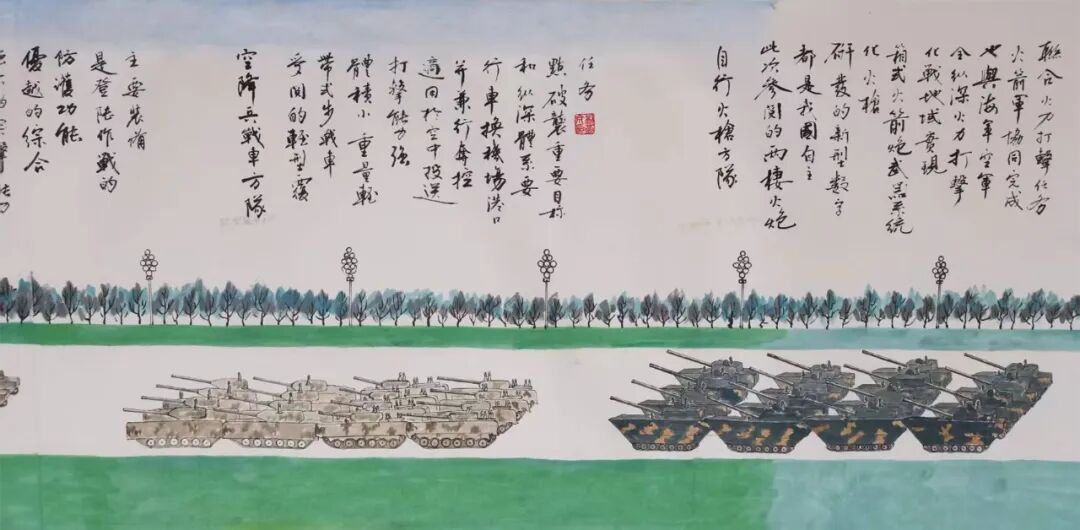 優越的綜合
防護功能
是登陸作戰的
主要裝備
空降兵戰車方隊
受閱的輕型履
帶式步戰車
體積小重量輕
打擊能力強
適同於空中投送
并兼行奔控
行車換機場港口
和縱深體系要
點破襲重要目標
任務
自行火槍方隊
此次參閱的兩棲火炮
都是我國自主
研發的新型數字
化火槍
箱式火箭炮武器系統
化戰地域實現
全縱深火力打擊
也與海軍空軍
火箭軍協同完成
聯合火力打擊任務